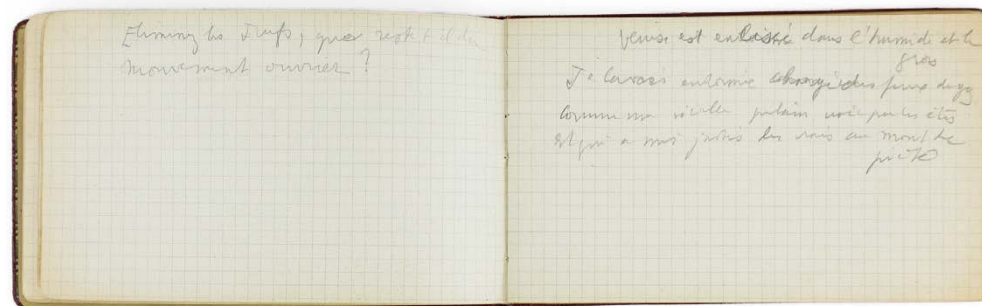 Eliminez les Juifs, que reste t il du
mouvement ouvrier ?
Venise est enlisée dans l'humide et le
gros
Je l'avais endormie des feux du gaz
comme une vieille putain par les étés
et qui a mis les vrais au mont de
piété